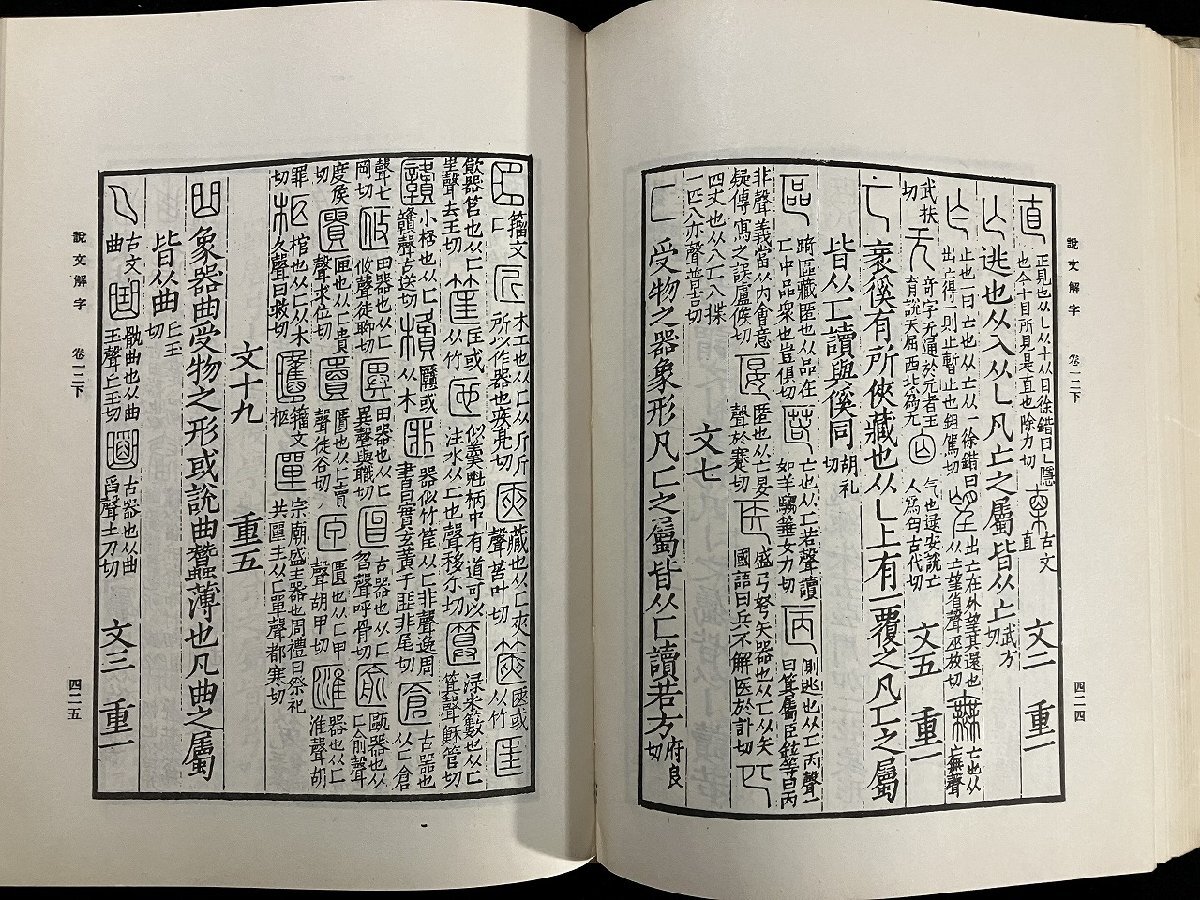 說文解字 卷一二下 四二四
直 正見也从乚从十从目徐鍇曰乚隱也今十目所見是直也除力切 古文直 文二 重一
亾 逃也从入从乚凡亡之屬皆从亡 武方切
乍 止也一曰亡也从亡从一徐鍇曰出亡得一則止暫止也鉏駕切 望 出亡在外望其還也从亡朢省聲巫放切 𣞤 亡也从亡無聲
武扶切 无 奇字无通於元者王育說天屈西北為无 匃 气也逯安說亡人為匃古代切 文五 重一
匸 衺徯有所俠藏也从乚上有一覆之凡匸之屬
皆从匸讀與傒同 胡礼切
區 踦區藏匿也从品在匸中品衆也豈俱切 匿 亡也从匸若聲讀如羊騶箠女力切 㔷 側逃也从匸丙聲一曰箕屬臣鉉等曰丙
非聲義當从内會意疑傳寫之誤盧候切 匽 匿也从匸妟聲於蹇切 医 盛弓弩矢器也从匸从矢國語曰兵不解医於計切 匹
四丈也从八匸八揲一匹八亦聲普吉切 文七
匚 受物之器象形凡匚之屬皆从匚讀若方 府良切
籀文匚 匠 木工也从匚从斤斤所以作器也疾亮切 匧 藏也从匚夾聲苦叶切 篋 匧或从竹 匡
飲器筥也从匚㞷聲去王切 筐 匡或从竹 匜 似羹魁柄中有道可以注水从匚也聲移尒切 匴 渌米籔也从匚算聲穌管切
小桮也从匚贛聲古送切 或从木 匪 器似竹筐从匚非聲逸周書曰實玄黃于匪非尾切 古器也从匚倉
聲七岡切 田器也从匚攸聲徒聊切 田器也从匚異聲與職切 古器也从匚曶聲呼骨切 甌器也从匚俞聲
度侯切 匱 匣也从匚貴聲求位切 匵 匱也从匚賣聲徒谷切 匣 匱也从匚甲聲胡甲切 匯 器也从匚淮聲胡
罪切 柩 棺也从匚从木久聲巨救切 籀文柩 匰 宗廟盛主器也周禮曰祭祀共匰主从匚單聲都寒切
文十九 重五
曲 象器曲受物之形或說曲蠶薄也凡曲之屬
皆从曲 丘玉切
古文曲 骫曲也从曲玉聲丘玉切 古器也从曲舀聲土刀切 文三 重一
說文解字 卷一二下 四二五